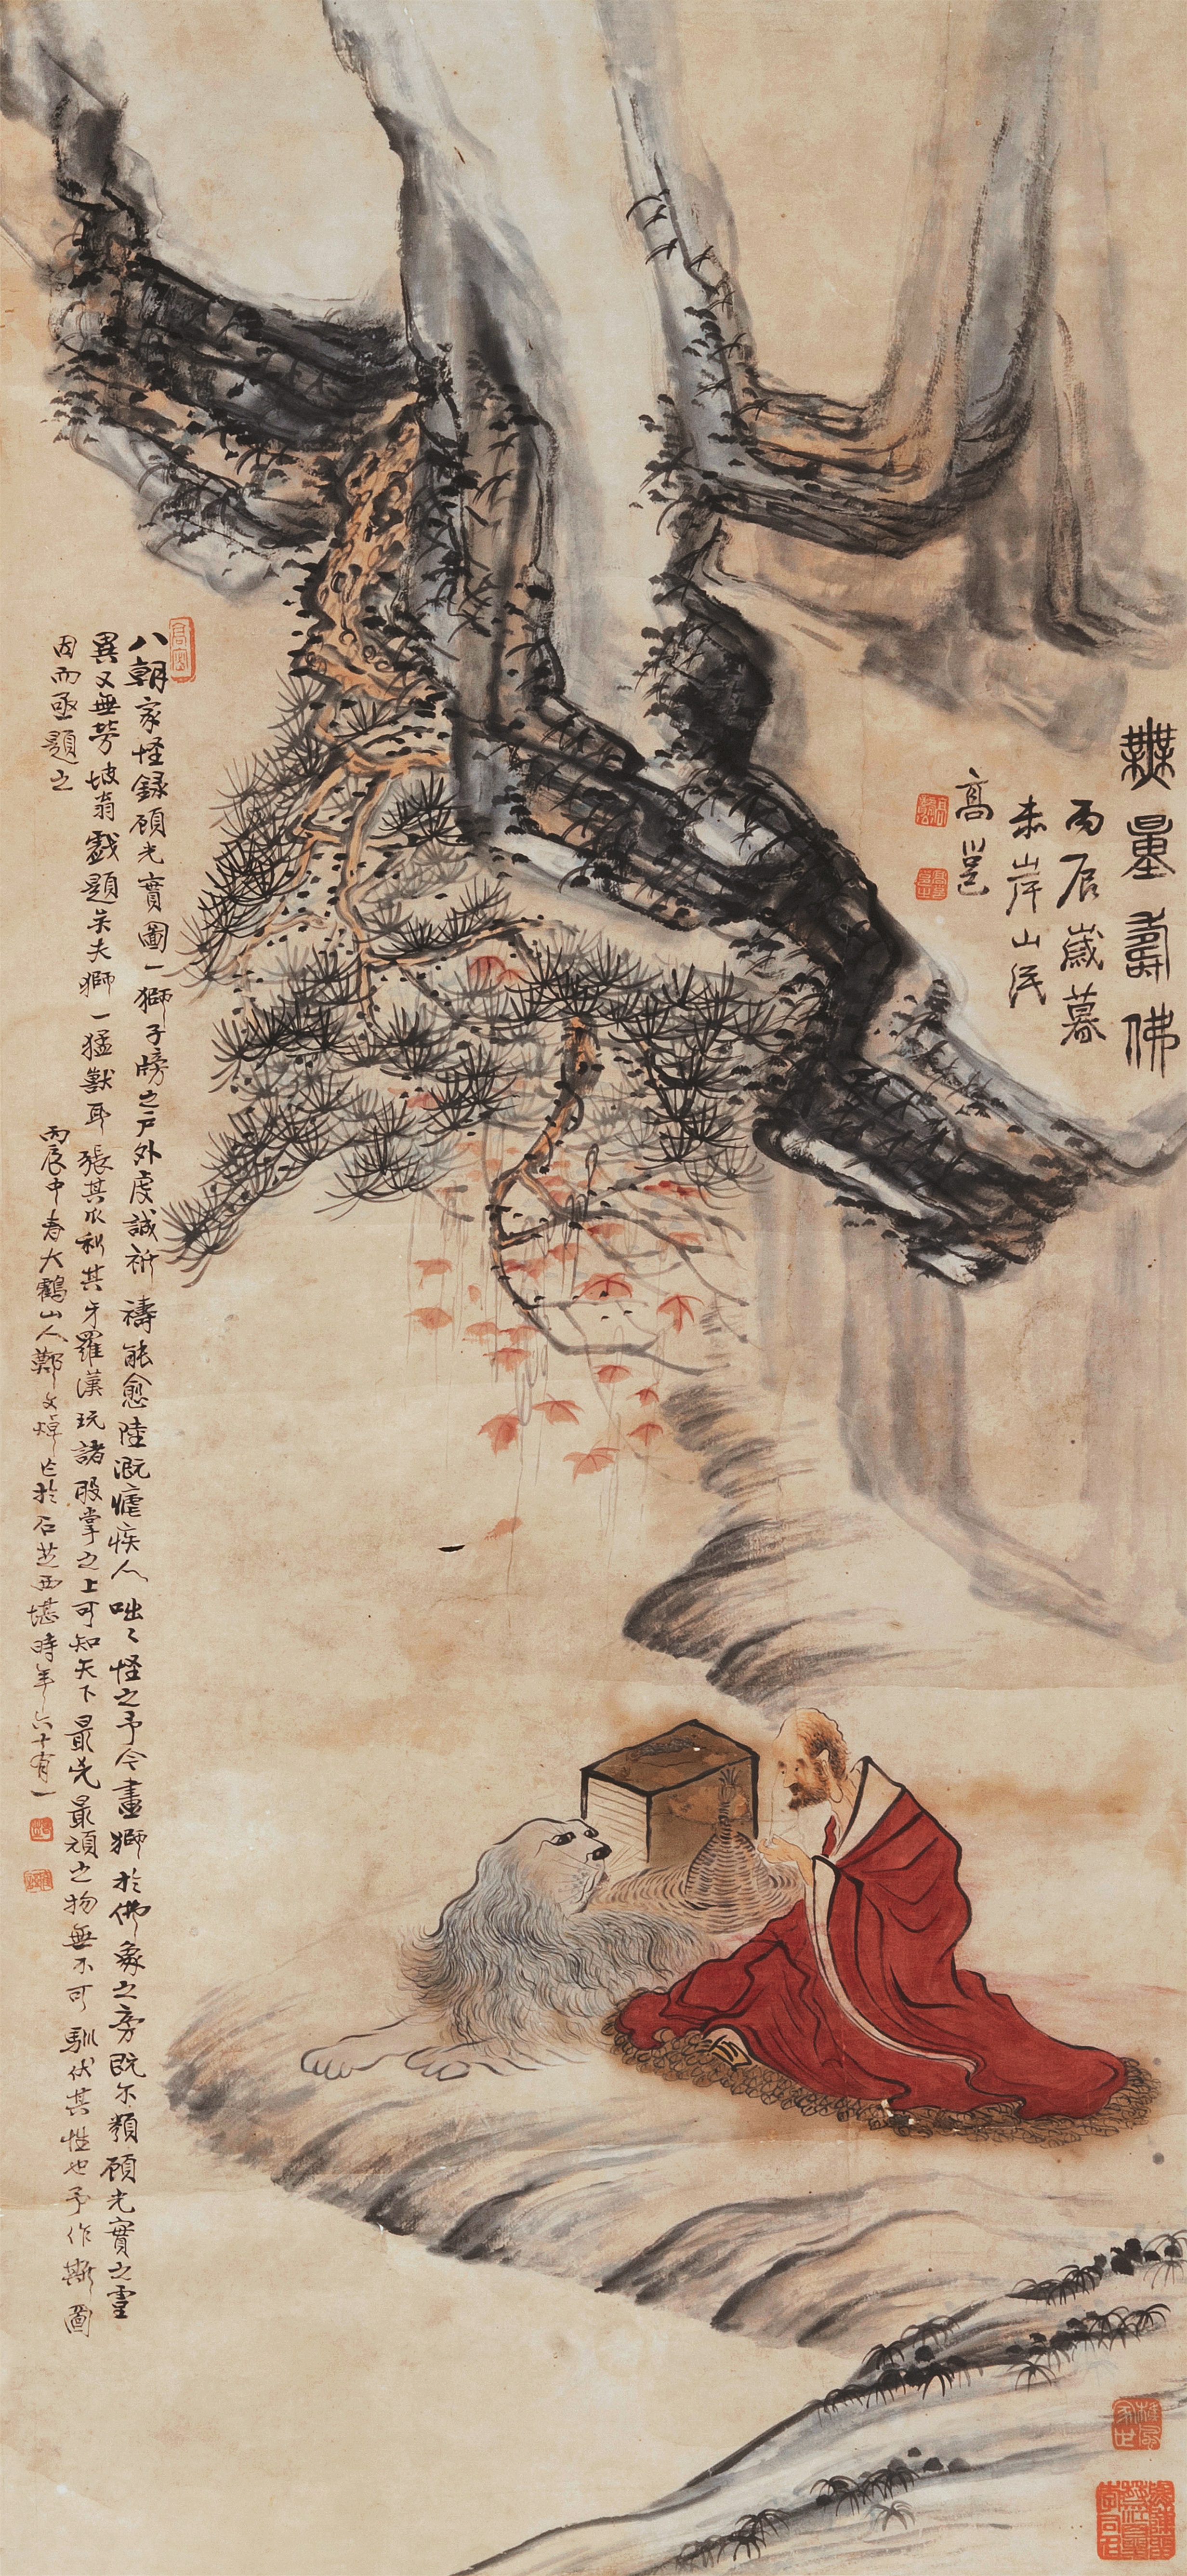 無量壽佛
丙辰歲暮
赤岸山民
高邕
八朝家怪錄顧光寶圖一獅子牓之戶外虔誠祈禱能愈陸溉瘧疾人咄〻怪之予今畫獅於佛象之旁既不類顧光寶之靈
異又無勞坡翁戲題矣夫獅一猛獸耳張其爪利其牙羅漢玩諸股掌之上可知天下最兇最頑之物無不可馴伏其性也予作斯圖
因而亟題之
丙辰中春大鶴山人鄭文焯作於石芝西堪時年六十有一